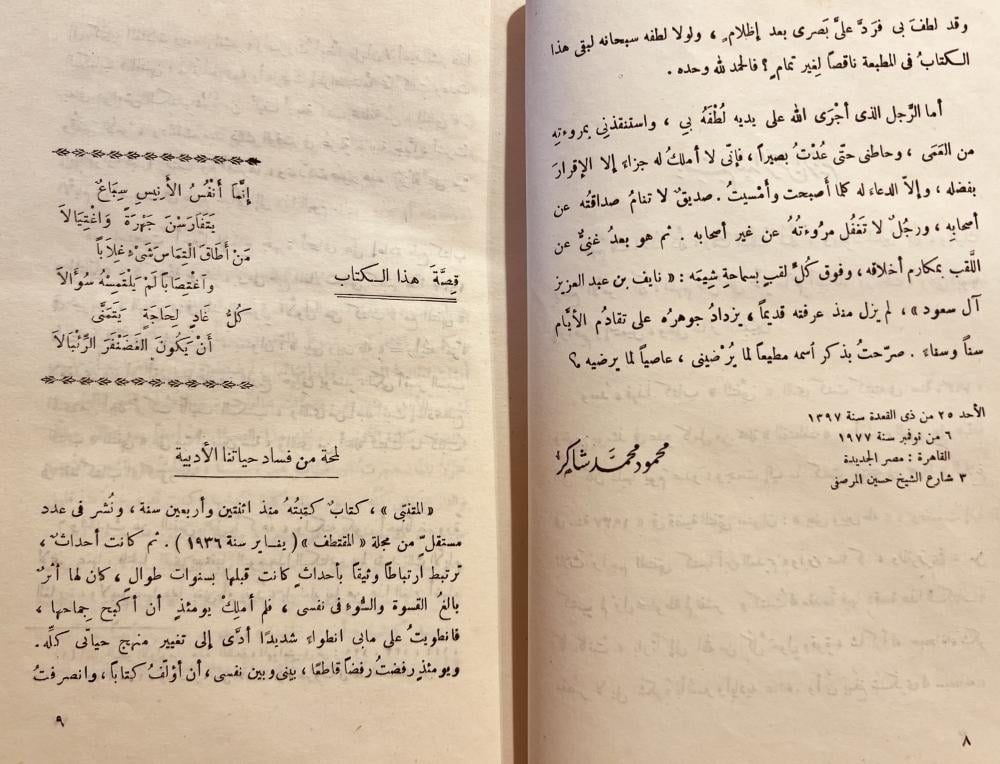 وقد لطفَ بى فرَدَّ علىَّ بَصَرى بعد إظلام ، ولولا لطفه سبحانه لبقى هذا
الكتابُ فى المطبعة ناقصاً لِغير تمام ؟ فالحمد لله وحده .
أما الرَّجل الذى أجْرَى الله على يديه لُطْفَهُ بي ، واستنقذنِى بمروءتِهِ
من العَمَى ، وحاطنى حتَّى عُدْتُ بصيراً ، فإنّى لا أملكُ له جزاءً إلا الإقرارَ
بفضله ، وإلاّ الدعاءَ له كلما أصبحت وأمْسيتُ . صديقٌ لا تنامُ صداقتُه عن
أصحابِه ، ورجُلٌ لا تَغفُل مرُوءتُهُ عن غير أصحابه . ثم هو بعدُ غنىٌّ عن
اللَّقب بمكارم أخلاقه ، وفوق كُلِّ لقبٍ بسماحةِ شِيَمَه : « نايف بن عبد العزيز
آل سعود » ، لم يزل منذ عرفته قديماً ، يزدادُ جوهرُه على تقادُم الأيَّام
سناً وسناءً . صرّحتُ بذكر اسمه مطيعاً لما يُرْضيني ، عاصياً لما يرضيه ؟
الأحد ٢٥ من ذى القعدة سنة ١٣٩٧
٦ من نوفمبر سنة ١٩٧٧
القاهرة : مصر الجديدة
٣ شارع الشيخ حسين المرصفى
محمود محمد شاكر
٨
إنَّمَا أنْفُسُ الأَنِيسِ سِبَاعٌ
يَتَفَارَسْنَ جَهْرَةً وَاغْتِيَالاَ
مَنْ أطَاقَ الْتِمَاسَ شَىْءٍ غِلَاباً
وَاغْتِصَاباً لَمْ يَلْتَمِسْهُ سُؤَالاَ
كُلُّ غَادٍ لِحَاجَةٍ يَتَمَنَّى
أنْ يَكُونَ الغَضَنْفَرَ الرِّئْبَالاَ
قِصَّةُ هذا الكتاب
لمحة من فساد حياتنا الأدبية
« المتنبّى » ، كتابٌ كتبتُهُ منذ اثنتين وأربعين سنة ، ونُشر فى عدد
مستقلٍّ من مجلة « المقتطف » ( يناير سنة ١٩٣٦ ) . ثم كانت أحداثٌ ،
ترتبط ارتباطاً وثيقاً بأحداثٍ كانت قبلها بسنوات طوال ، كان لها أثرٌ
بالغُ القسوة والسُّوء فى نفسى ، فلم أملِكْ يومئذٍ أن أكبح جِماحها ،
فانطويتُ على مابى انطواءً شديدًا أدَّى إلى تغيير منهج حياتى كلِّه .
ويومئذٍ رفضتُ رفضاً قاطعًا ، بينى وبين نفسى ، أن أؤلّفَ كتاباً ، وانصرفتُ
٩